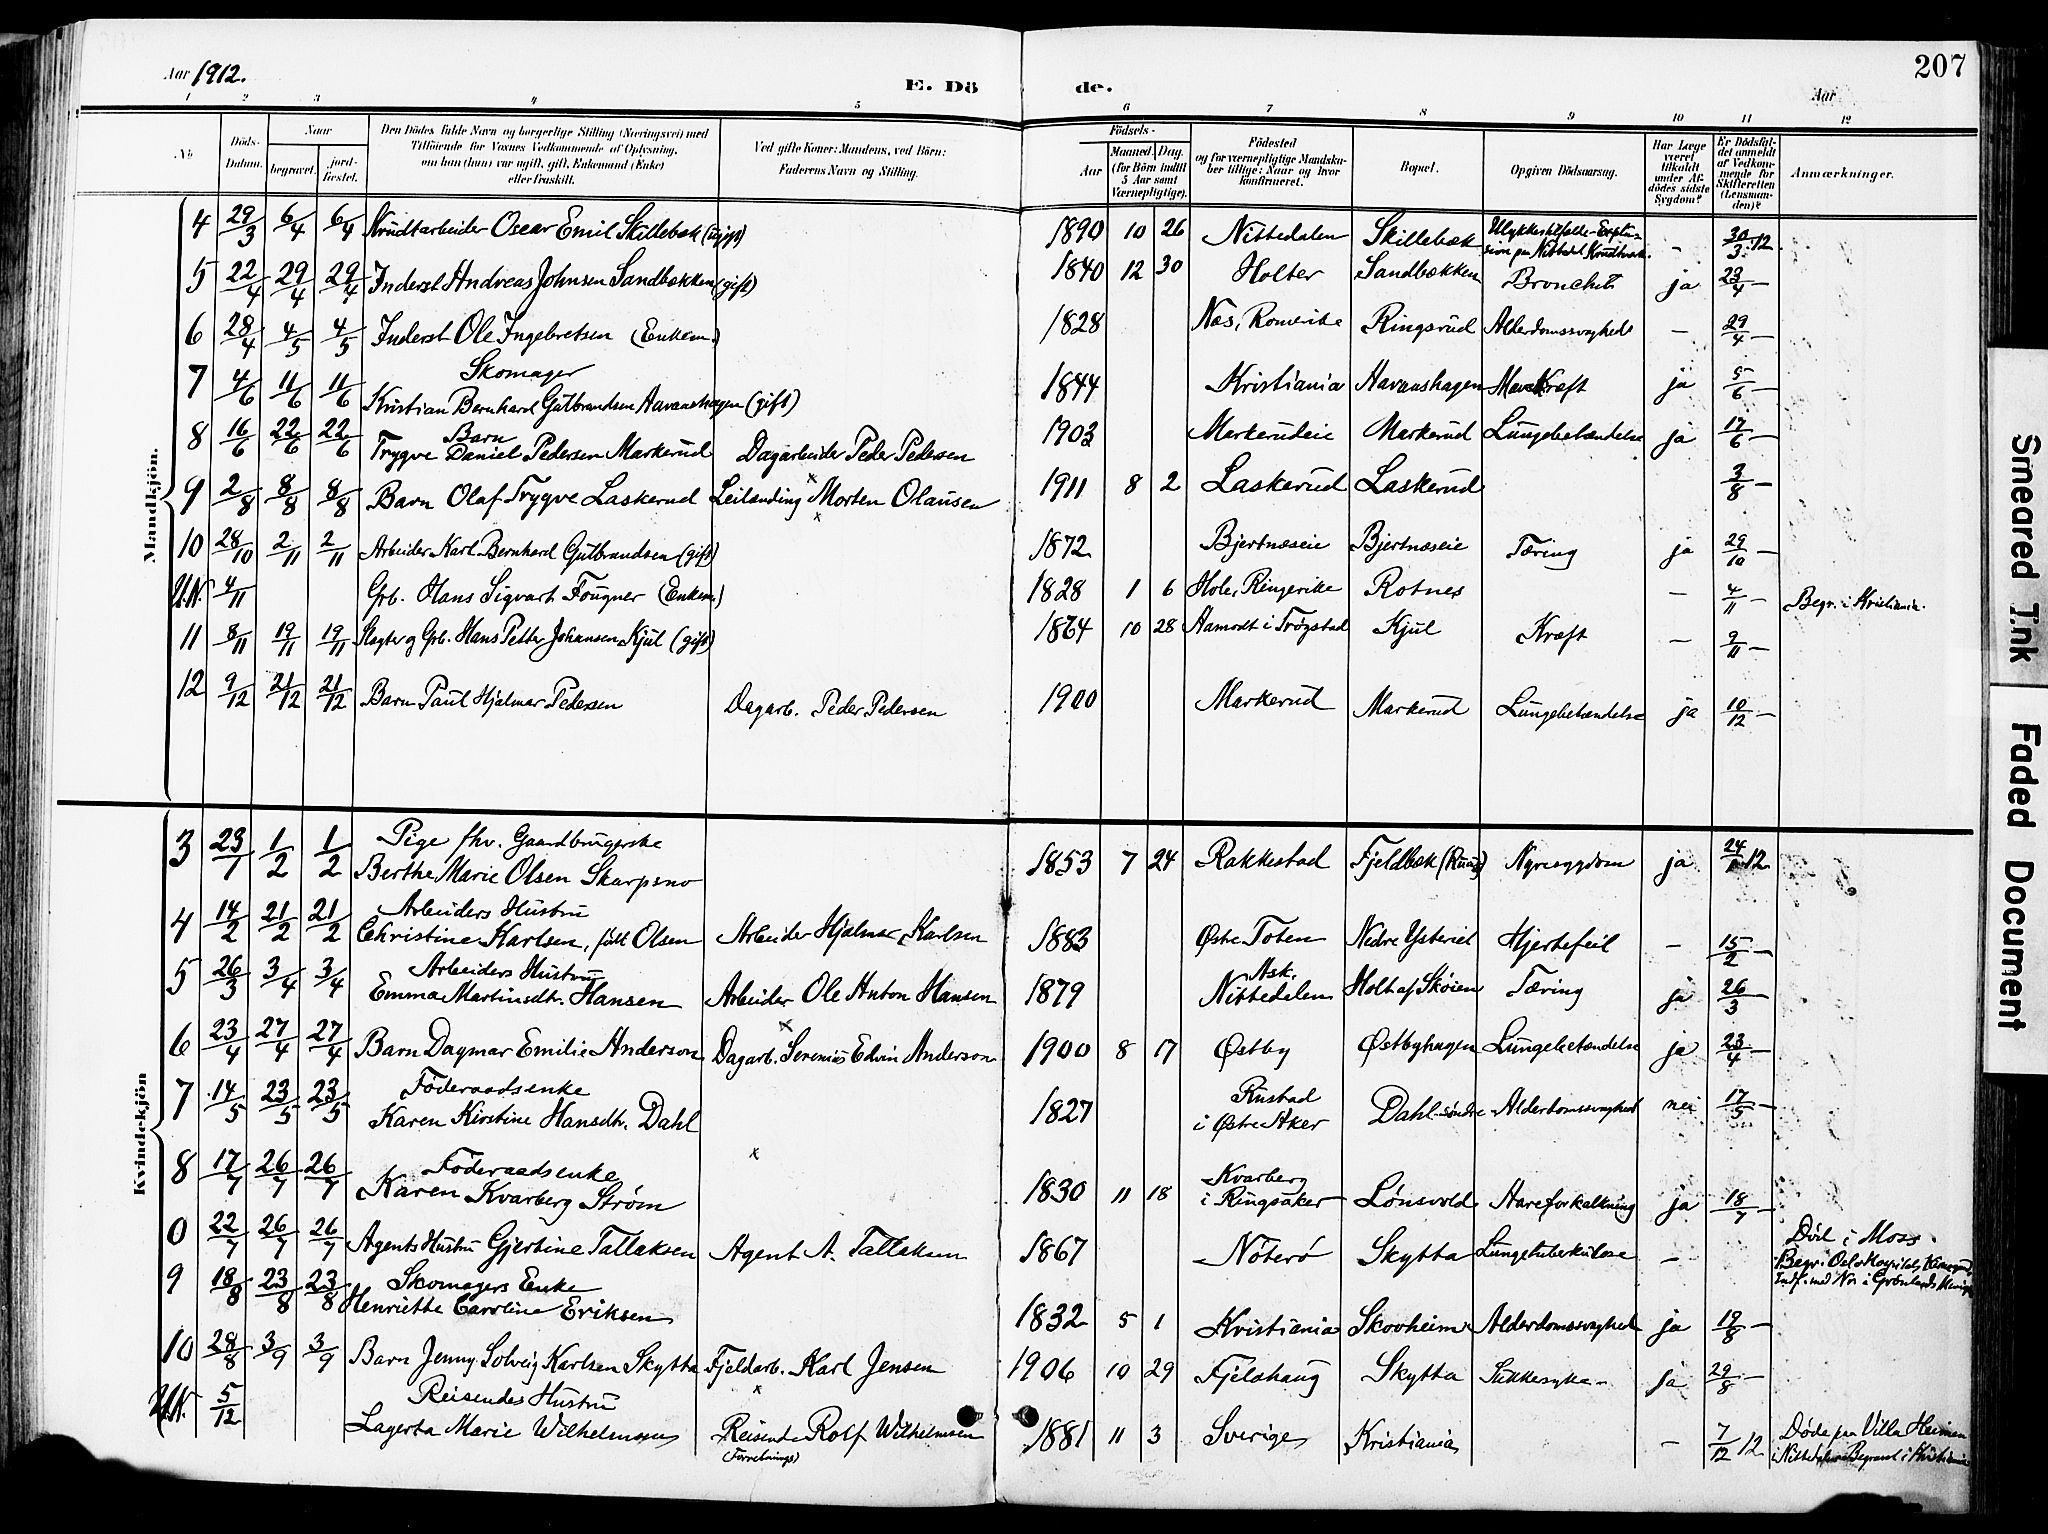 207
Aar 1912.
E. Dö de.
Aar
1 2 3 4 5 6 7 8 9 10 11 12
No
Döds-Datum.
Naar
begravet.
jord-fæstet.
Den Dödes fulde Navn og borgerlige Stilling (Næringsvei) med
Tilföiende for Voxnes Vedkommende af Oplysning,
om han (hun) var ugift, gift, Enkemand (Enke)
eller fraskilt.
Ved gifte Koner: Mandens, ved Börn:
Faderens Navn og Stilling.
Födsels-
Aar
Maaned. Dag.
(for Börn indtil
5 Aar samt
Værnepligtige).
Födested
og for værnepligtige Mandsku-
ber tillige: Naar og hvor
konfirmeret.
Bopæl.
Opgiven Dödsaarsag.
Har Læge
været
tilkaldt
under Af-
dödes sidste
Sygdom?
Er Dödsfal-
det anmeldt
af Vedkom-
mende for
Skifteretten
(Lensman-
den)?
Anmærkninger.
Mandkjön.
4 29/3 6/4 6/4 Krudtarbeider Oscar Emil Skillebæk (ugift) 1890 10 26 Nittedalen Skillebæk Ulykkestilfælde-Explo-
sion paa Nittedal Krudtværk. - 30/3 12
5 22/4 29/4 29/4 Inderst Andreas Johnsen Sandbækken (gift) 1840 12 30 Holter Sandbækken Bronchit ja 23/4 -
6 28/4 4/5 4/5 Inderst Ole Ingebretsen (Enkem.) 1828 Nes, Romerike Ringsrud Alderdomssvaghed - 29/4 -
7 4/6 11/6 11/6 Skomager
Kristian Bernhard Gulbrandsen Aavanshagen (gift) 1844 Kristiania Havanshagen Mavekræft ja 5/6 -
8 16/6 22/6 22/6 Barn
Trygve Daniel Pedersen Markerud Dagarbeider Peder Pedersen 1903 Markerudeie Markerud Lungebetændelse ja 17/6 -
9 2/8 8/8 8/8 Barn Olaf Trygve Laskerud Leilending Morten Olausen 1911 8 2 Laskerud Laskerud 3/8 -
10 28/10 2/11 2/11 Arbeider Karl Bernhard Gulbrandsen (gift) 1872 Bjertnæseie Bjertnæseie Tæring ja 29/10 -
U.N. 4/11 Grb. Hans Sigvart Fougner (Enkem.) 1828 1 6 Hole, Ringerike Rotnes - 4/11 - Begr. i Kristiania.
11 8/11 19/11 19/11 Slagter og Grb. Hans Petter Johansen Kjul (gift) 1864 10 28 Aamodt i Trøgstad Kjul Kræft - 9/11 -
12 9/12 21/12 21/12 Barn Paul Hjalmar Pedersen Dagarb. Peder Pedersen 1900 Markerud Markerud Lungebetændelse ja 10/12 -
Kvindekjön
3 23/1 1/2 1/2 Pige fhv. Gaardbrugerske
Berthe Marie Olsen Skarpsno 1853 7 24 Rakkestad Fjeldbæk (Ruud) Nyresygdom ja 24/1 12
4 14/2 21/2 21/2 Arbeiders Hustru
Christine Karlsen, født Olsen Arbeider Hjalmar Karlsen 1883 Østre Toten Nedre Ysteriet Hjertefeil - 15/2 -
5 26/3 3/4 3/4 Arbeiders Hustru
Emma Martinsdtr. Hansen Arbeider Ole Anton Hansen 1879 Ask.
Nittedalen Holt af Skøien Tæring ja 26/3 -
6 23/4 27/4 27/4 Barn Dagmar Emilie Anderson Dagarb. Severinus Edvin Anderson 1900 8 17 Østby Østbyhagen Lungebetændelse ja 23/4 -
7 14/5 23/5 23/5 Føderaadsenke
Karen Kirstine Hansdtr. Dahl 1827 Rustad
i Østre Aker Dahl søndre Alderdomssvaghed nei 17/5 -
8 17/7 26/7 26/7 Føderaadsenke
Karen Kvarberg Strøm 1830 11 18 Kvarberg
i Ringsaker Lønsvold Aareforkalkning ja 18/7 -
0 22/7 26/7 26/7 Agents Hustru Gjertine Tallaksen Agent A. Tallaksen 1867 Nøterø Skytta Lungetuberkulose - Død i Moss.
Begr. i Oslo Hospitals Kirkegaard
Indf. med No i Grønlands Menigh.
9 18/8 23/8 23/8 Skomagers Enke
Henriette Caroline Eriksen 1832 5 1 Kristiania Skovheim Alderdomssvaghed ja 19/8 -
10 28/8 3/9 3/9 Barn Jenny Solveig Karlsen Skytta Fjeldarb. Karl Jensen 1906 10 29 Fjelshaug Skytta Sukkersyke ja 29/8 -
U.N. 5/12 Reisendes Hustru
Lagerta Marie Wilhelmsen Reisende Rolf Wilhelmsen
(Forretnings) 1881 11 3 Sverige Kristiania - 7/12 12 Døde paa Villa Heimen
i Nittedalen Begravet i Kristiania
Smeared Ink
Faded Document